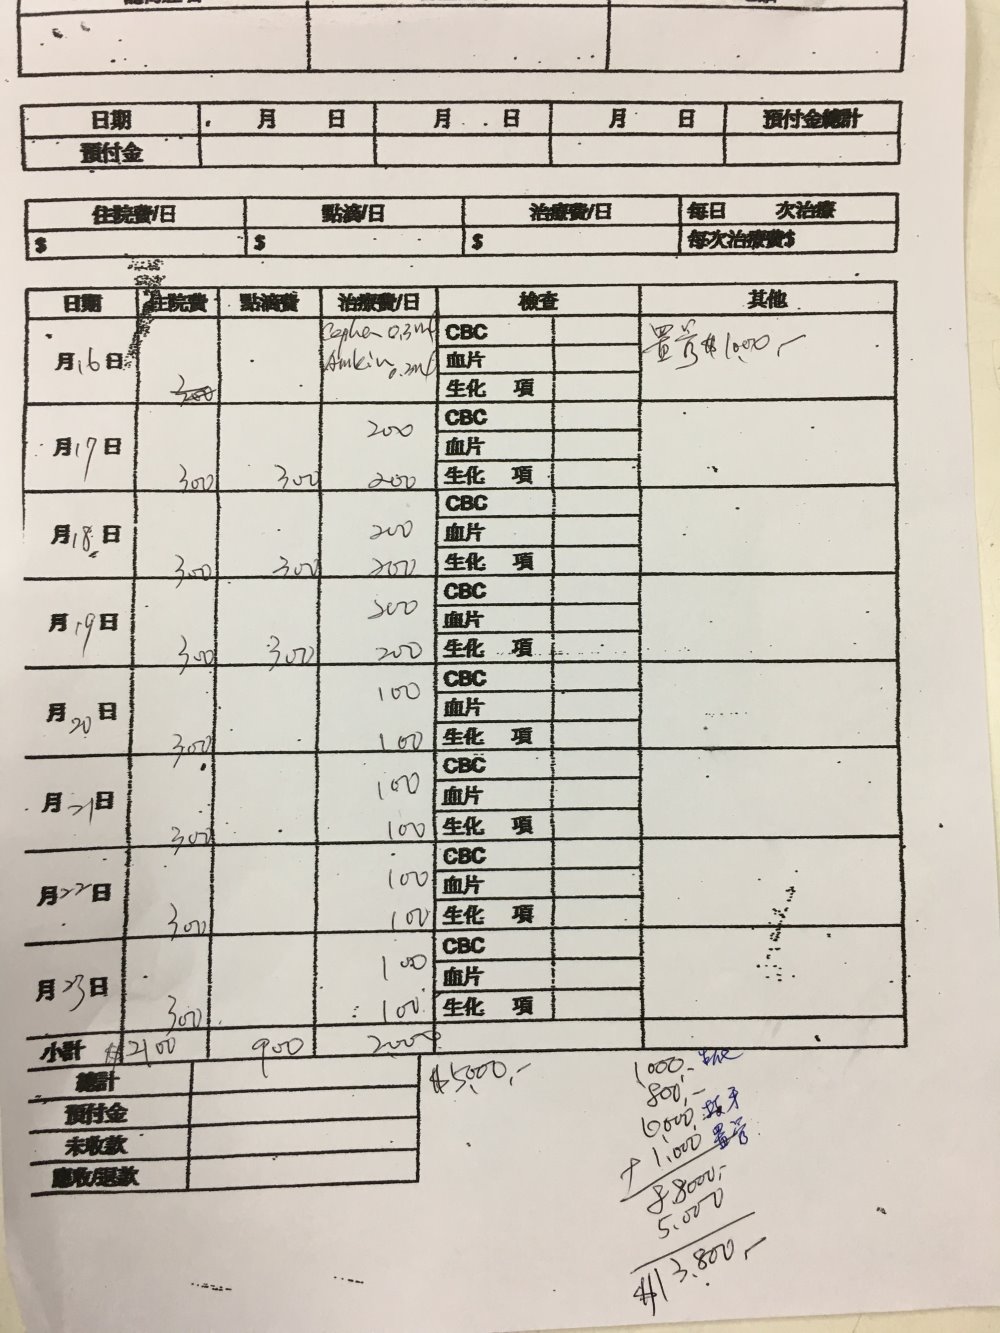 日期 月 日 月 日 月 日 預付金總計
預付金
住院費/日 點滴/日 治療費/日 每日 次治療
$ $ $ 每次治療費$
日期 住院費 點滴費 治療費/日 檢查 其他
月16日 300 Cephen 0.3ml CBC 置管$1000,-
Amkin 0.2ml 血片
生化 項
月17日 200 CBC
血片
300 300 200 生化 項
月18日 200 CBC
血片
300 300 200 生化 項
月19日 200 CBC
血片
300 300 200 生化 項
月20日 100 CBC
血片
300 100 生化 項
月21日 100 CBC
血片
300 100 生化 項
月22日 100 CBC
血片
300 100 生化 項
月23日 100 CBC
血片
300 100 生化 項
小計 $2100 900 2000
總計
預付金
未收款
應收/退款
$5,000,-
1,000,- 生化
800,-
6,000, 拔牙
+ 1,000 置管
8,8000,-
5,000
$13,800,-